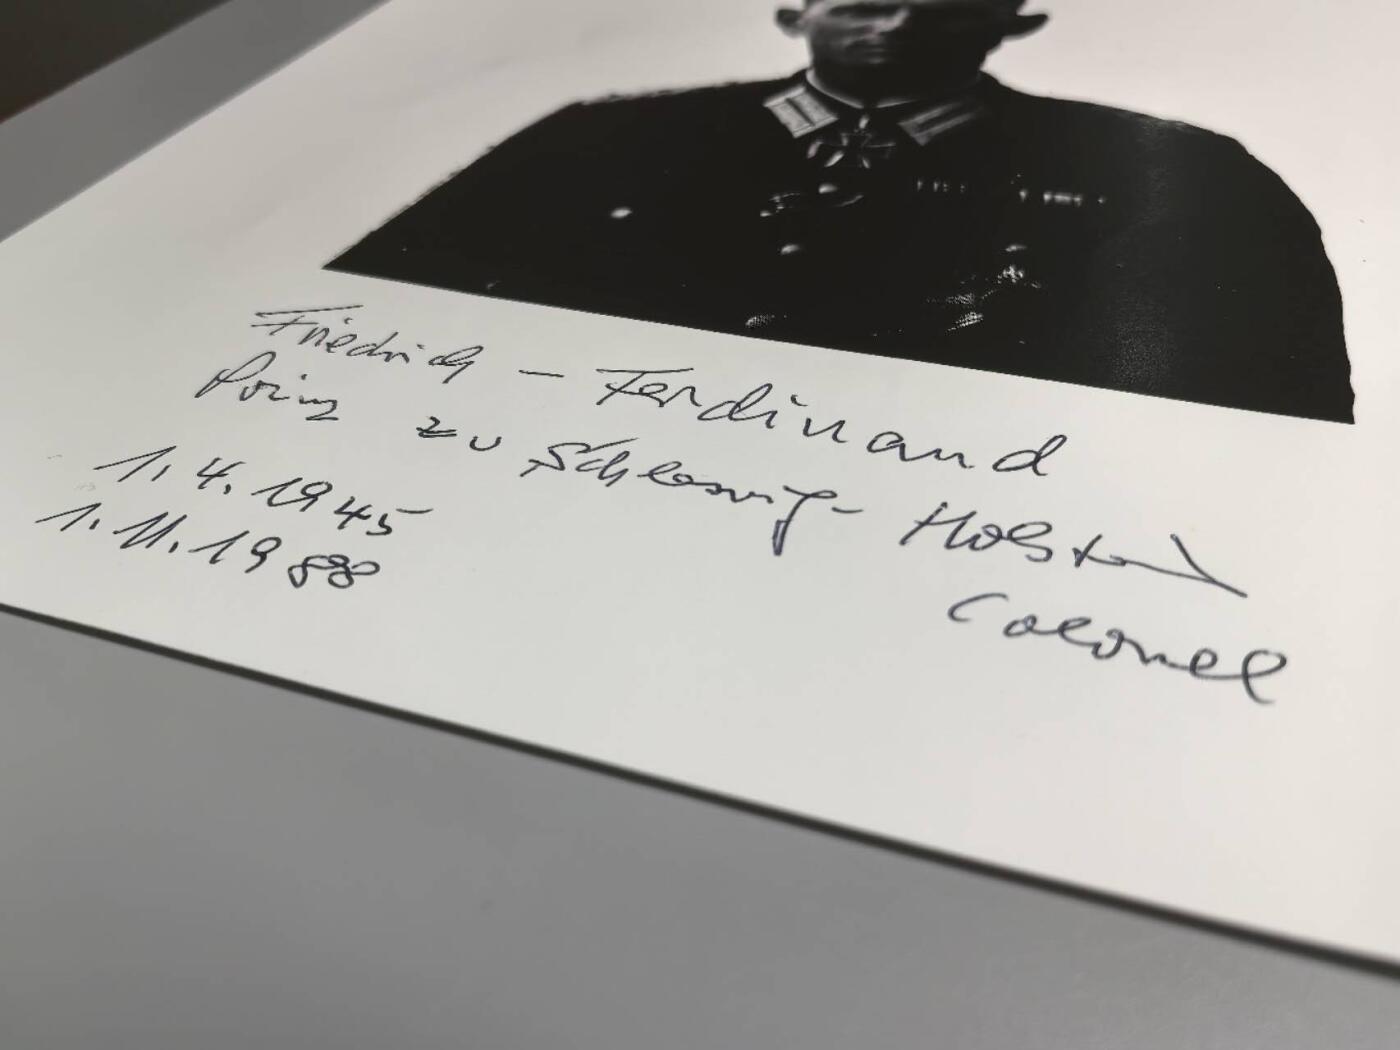 Friedrich - Ferdinand
Prinz zu Schleswig-Holstein
Colonel
1.4.1945
1.11.1988